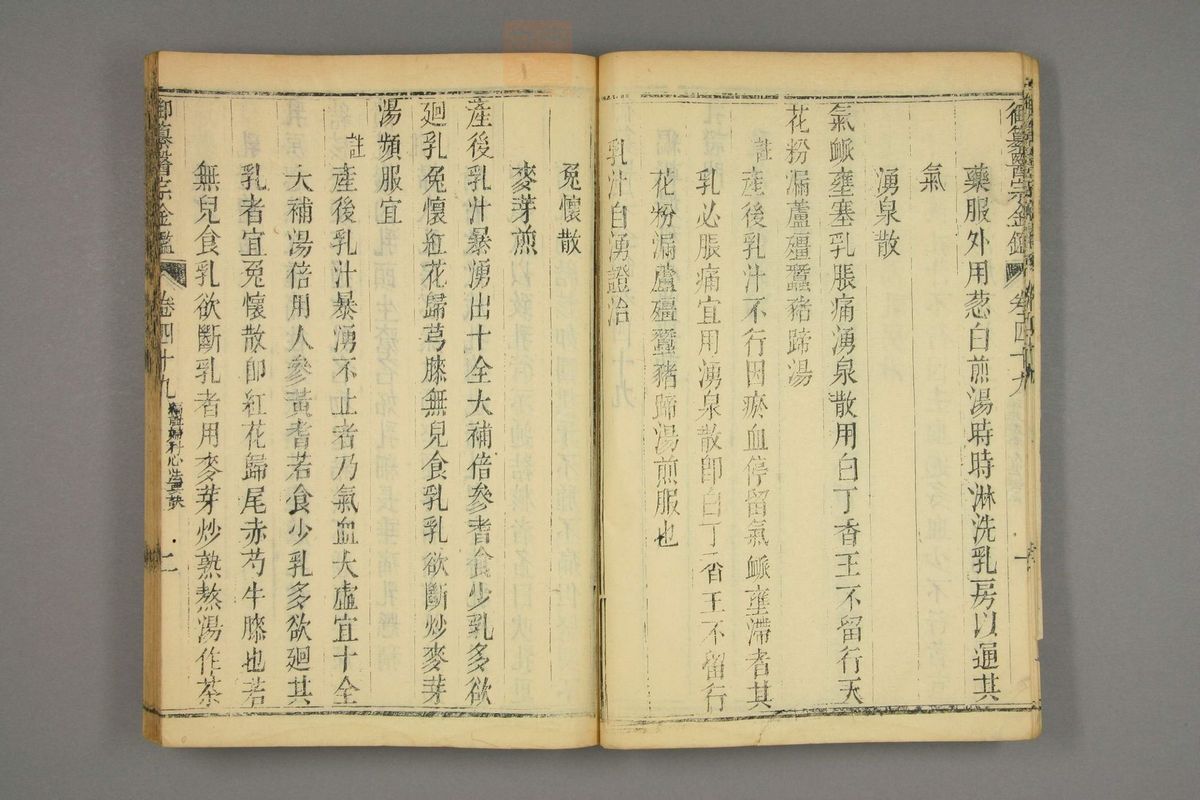 御纂醫宗金鑑 卷四十九 一
藥服外用葱白煎湯時時淋洗乳房以通其
氣
湧泉散
氣衇壅塞乳脹痛湧泉散用白丁香王不留行天
花粉漏蘆殭蠶豬蹄湯
註 產後乳汁不行因瘀血停留氣衇壅滯者其
乳必脹痛宜用湧泉散卽白丁香王不留行
花粉漏蘆殭蠶豬蹄湯煎服也
乳汁自湧證治
免懷散
麥芽煎
產後乳汁暴湧出十全大補倍參耆食少乳多欲
廻乳免懷紅花歸芎膝無兒食乳乳欲斷炒麥芽
湯頻服宜
註 產後乳汁暴湧不止者乃氣血大虛宜十全
大補湯倍用人參黃耆若食少乳多欲廻其
乳者宜免懷散卽紅花歸尾赤芍牛膝也若
無兒食乳欲斷乳者用麥芽炒熟熬湯作茶
御纂醫宗金鑑 卷四十九 編註婦科心法要訣 二